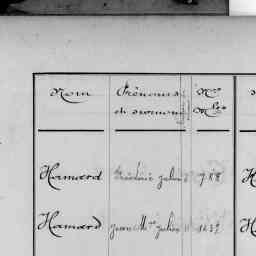 Nom Prénoms Nos
et surnoms Mle
Hamard Frédéric Jules 788
Hamard Jean Mie Jules 1239